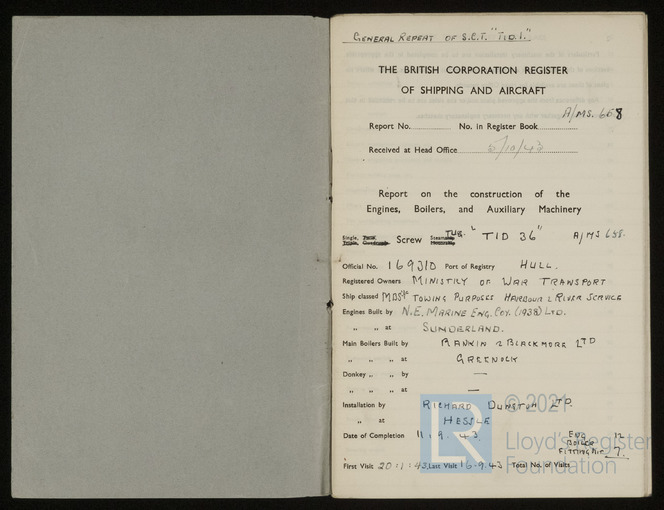 GENERAL REPEAT OF S.C.T. "TID.1."
THE BRITISH CORPORATION REGISTER
OF SHIPPING AND AIRCRAFT
A/MS. 658
Report No. No. in Register Book
Received at Head Office 5/10/43
Report on the construction of the
Engines, Boilers, and Auxiliary Machinery
Single, Twin, Triple, Quadruple Screw Steamship Motorship TUG. "TID 36" A/MS 658.
Official No. 169310 Port of Registry HULL.
Registered Owners MINISTRY OF WAR TRANSPORT
Ship classed MBS* TOWING PURPOSES HARBOUR & RIVER SERVICE
Engines Built by N.E. MARINE ENG. COY. (1938) LTD.
" " at SUNDERLAND.
Main Boilers Built by RANKIN & BLACKMORE LTD
" " at GREENOCK
Donkey " " by —
" " " at —
Installation by RICHARD DUNSTON LTD.
" at HESSLE
Date of Completion 11.9.43.
ENG 12
BOILER
FITTING 7.
First Visit 20:1:43, Last Visit 16-9.43 Total No. of Visits
© 2021
Lloyd's Register
Foundation
LR